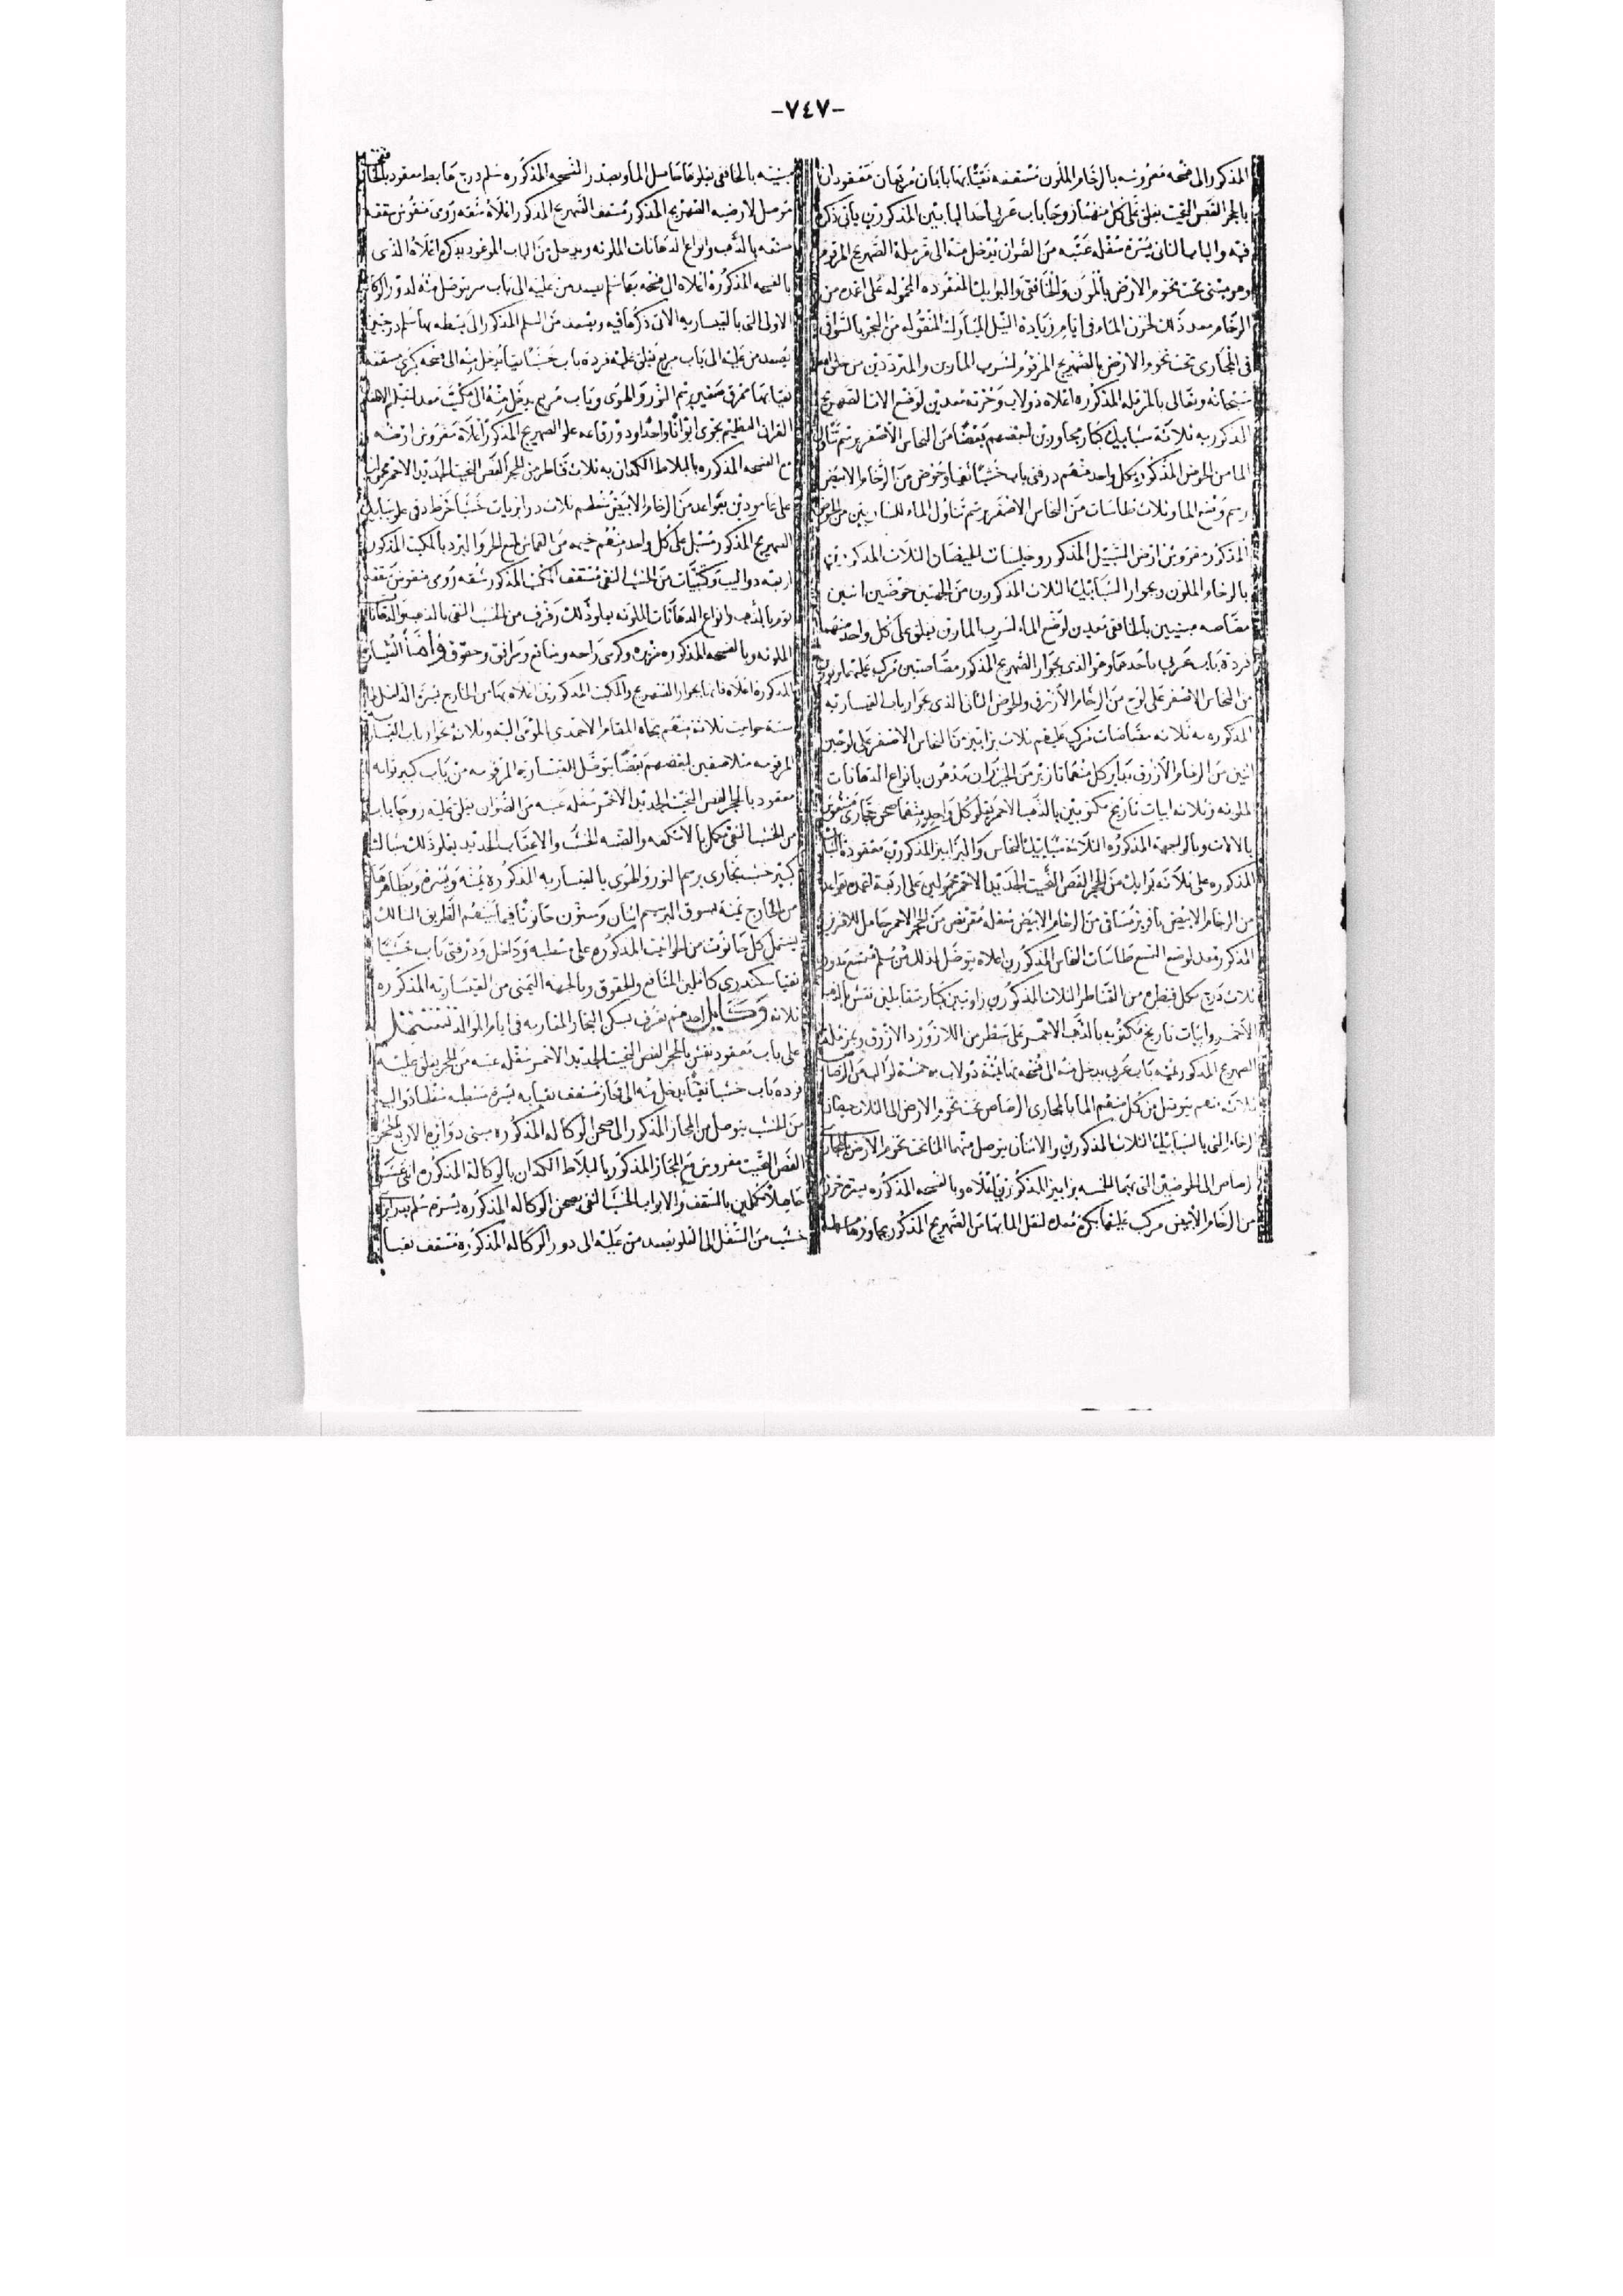 -٧٤٧-
المذكور الى فسحه مفروشه بالرخام الملون مسقفه نقيا بها بابان مربعان معقودان
بالحجر الفص النحيت يغلق على كل منهما زوجا باب عربي احد البابين المذكورين يأتى ذكره
فيه والباب الثانى يسرة سفله عتبه من الصوان يدخل منه الى مزملة الصهريج المرقوم
وهو مبنى تحت تخوم الارض بالمون والخافقى والبوايك المعقوده المحموله على اعمده من
الرخام معد ذلك لخزن الماء فى ايام زيادة النيل المبارك المنقوله من البحر بالسواقى
فى المجارى تحت تخوم الارض بالصهريج المرقوم لشرب المارين والمترددين من خلق الله
سبحانه وتعالى بالمزمله المذكوره اعلاه دولاب وخزنه معدين لوضع الات الصهريج
المذكور به ثلاثة شبابيك كبار مجاورين لبعضهم بعضا من النحاس الاصفر برسم تناول
الما من الحوض المذكور بكل واحد منهم درفتى باب خشبا نقيا وحوض من الرخام الابيض
برسم وضع الما وثلاث طاسات من النحاس الاصفر برسم تناول الماء للشاربين من الحوض
المذكور مفروش ارض السبيل المذكور وجلسات الحيضان الثلاث المذكورين
بالرخام الملون وبجوار الشبابيك الثلاث المذكورين من الجهتين حوضين اثنين
مصاصه مبنيين بالخافقى معدين لوضع الماء لشرب المارة يغلق على كل واحد منهما
فردة باب عربي باحدهما وهو الذى بجوار الصهريج المذكور مصاصتين مركب عليهما بزبوزين
من النحاس الاصفر على لوح من الرخام الازرق والحوض الثانى الذى بجوار باب القيساريه
المذكوره به ثلاثه مصاصات مركب عليهم ثلاث بزابيز من النحاس الاصفر على لوحين
اثنين من الرخام الازرق بداير كل منهما تازير من الخيزران مدهون بانواع الدهانات
الملونه وثلاثه ابيات تاريخ مكتوبين بالذهب الاحمر يعلو كل واحد منهما صحن حجارى منقوش
بالالات وبالواجهة المذكوره الثلاثة شبابيك النحاس والبزابيز المذكورين معقودة
المذكوره على ثلاثه بوايك من الحجر الفص النحيت الجديد الاحمر محمولين على اربعة اعمده بقواعد
من الرخام الابيض بافريز مساقى من الرخام الابيض سفله مقرنص من الحجر الاحمر حامل للافريز
المذكور معد لوضع التسع طاسات النحاس المذكورين اعلاه يتوصل لذلك من سلم متسع مدور
ثلاث درج بكل قنطره من القناطر الثلاث المذكورين زاويتين كبار متقابلين نقش بالذهب
الاحمر وابيات تاريخ مكتوبه بالذهب الاحمر على سطر من اللازورد الازرق وبمزملة
الصهريج المذكور يمنه باب عربي يدخل منه الى فسحه بها يمنة دولاب به خمسة لوالب من الرصاص
ثلاث منهم يتوصل من كل منهم الما بالمجارى الرصاص تحت تخوم الارض الى الثلاث حيضان
الرخام التى بالشبابيك الثلاث المذكورين والاثنان يتوصل منهما الما تحت تخوم الارض
رصاص الى الحوضين التى بهما الخمسه بزابيز المذكورين اعلاه وبالفسحه المذكوره بيره خرزة
من الرخام الابيض مركب عليها بكرة معده لنقل الما بها من الصهريج المذكور
مبنيه بالخافقى يعلوها حاصل الما وبصدر الفسحه المذكوره سلم درج هابط معقود بالحجر
توصل لارضيه الصهريج المذكور مسقف الصهريج المذكور اعلاه سقفه رومى منقوش
سقفه بالذهب وانواع الدهانات الملونه ويدخل من الباب الموعود بذكره اعلاه الذى
بالفسحه المذكوره اعلاه الى فسحه بها سلم يصعد من عليه الى باب سر يتوصل منه لدور الوكاله
الاولى التى بالقيساريه الاتى ذكرها فيه ويصعد من السلم المذكور الى بسطه بها سلم درجتين
يصعد من عليه الى باب مربع يغلق عليه فردة باب خشبا نقيا يدخل منه الى فسحه كبرى مسقفه
نقيا بها ممرق صغير برسم النور والهوى وباب مربع يدخل منه الى مكتب معد لتعليم الاطفال
القران العظيم يحوى ايوانا واحدا ودورقاعه علو الصهريج المذكور اعلاه مفروش ارضه
مع الفسحه المذكوره بالبلاط الكدان به ثلاث قناطر من الحجر الفص النحيت الجديد الاحمر محمولين
على عامودين بقواعد من الرخام الابيض سفلهم ثلاث درابزينات خشبا خرط دقى علو شبابيك
الصهريج المذكور مسبل على كل واحد منهم خيمه من القماش لمنع الحر والبرد بالمكتب المذكور
اربعه دواليب وكتبيات من الخشب النقى مسقف المكتب المذكور سقفه رومى منقوش
بالذهب وانواع الدهانات الملونه يعلو ذلك رفرف من الخشب النقى بالذهب والدهانات
الملونه وبالفسحه المذكوره مزيره وكرسى راحه ومنافع ومرافق وحقوق وأما القيساريه
المذكورة اعلاه فانها بجوار الصهريج والمكتب المذكورين اعلاه بها من الخارج يسرة الداخل
ستة حوانيت ثلاثة منهم تجاه المقام الاحمدى المومى اليه وثلاثة بجوار باب القيساريه
المرقومه متلاصقين لبعضهم بعضا يتوصل القيساريه المرقومه من باب كبير بوابه
معقود بالحجر الفص النحيت الجديد الاحمر سفله عتبه من الصوان يغلق عليه زوجا باب
من الخشب النقى مكمل بالاتكفه والضبه الخشب والاعقاب الحديد يعلو ذلك شباك
كبير خشب نجارى برسم النور والهوى بالقيساريه المذكوره يمنه ويسره وبظاهرها
من الخارج يمنة بسوق البرسيم اثنان وستون حانوتا فيما بينهم الطريق السالك
يشتمل كل حانوت من الحوانيت المذكوره على مسطبه وداخل ودرفتى باب خشبا
نقيا سكندرى كاملين المنافع والحقوق وبالجهه اليمنى من القيساريه المذكوره
ثلاثه وكايل احدهم تعرف بسكن التجار المغاربه فى ايام الموالد تشتمل
على باب معقود نقش بالحجر الفص النحيت الجديد الاحمر سفله عتبه من الحجر يغلق عليه
فرده باب خشبا نقيا يدخل منه الى مجاز مسقف نقيا به يسرة مسطبه سفلها دواليب
من الخشب يتوصل من المجاز المذكور الى صحن الوكاله المذكوره مبنى دوايره الاربع بالحجر
الفص النحيت مفروش مع المجاز المذكور بالبلاط الكدان بالوكالة المذكوره اثنى عشر
حاصلا مكملين بالسقف والابواب الخشب النقى بصحن الوكاله المذكوره يسره سلم بدرابزين
خشب من السفل الى العلو يصعد من عليه الى دور الوكاله المذكوره مسقف نقيا